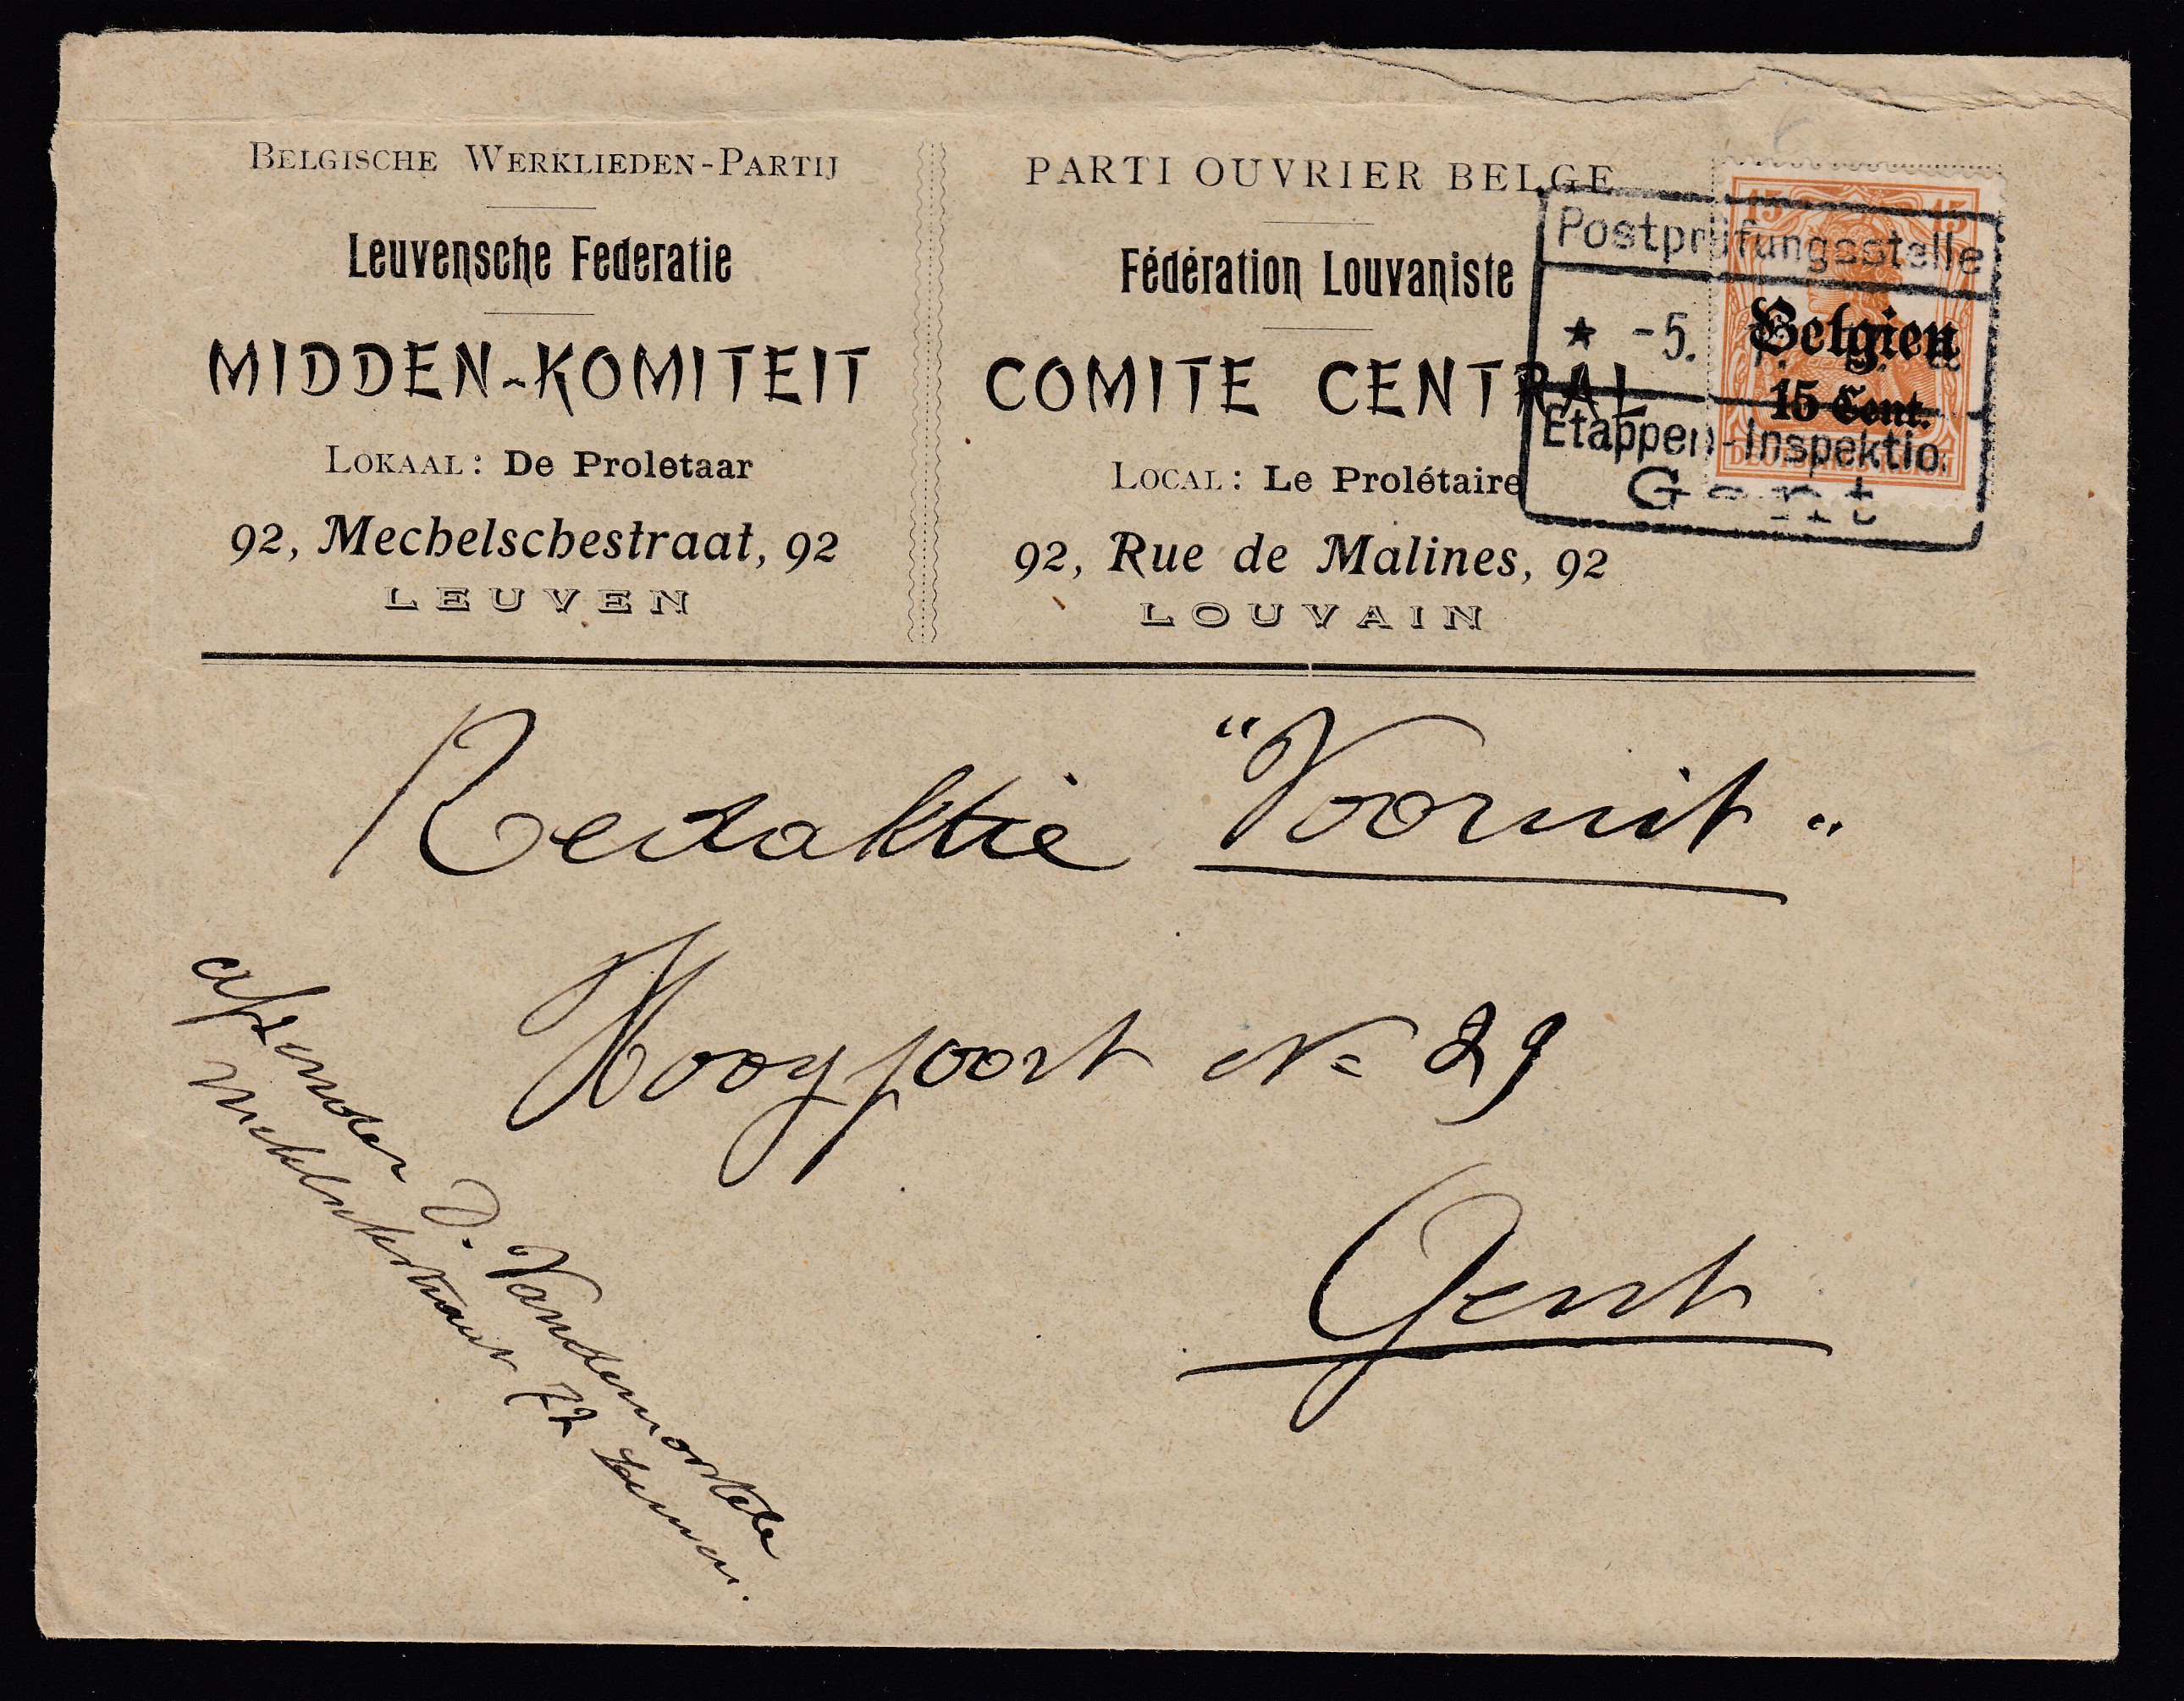 BELGISCHE WERKLIEDEN-PARTIJ
Leuvensche Federatie
MIDDEN-KOMITEIT
LOKAAL: De Proletaar
92, Mechelschestraat, 92
LEUVEN
PARTI OUVRIER BELGE
Fédération Louvaniste
COMITE CENTRAL
LOCAL: Le Prolétaire
92, Rue de Malines, 92
LOUVAIN
15 15
Belgien
15 Cent.
Postprüfungsstelle
★ -5.
Etappen-Inspektio.
Gent
Redaktie "Vooruit"
Hoogpoort No 29
Gent
afzender D. Vandemoortele
72 Leuven.